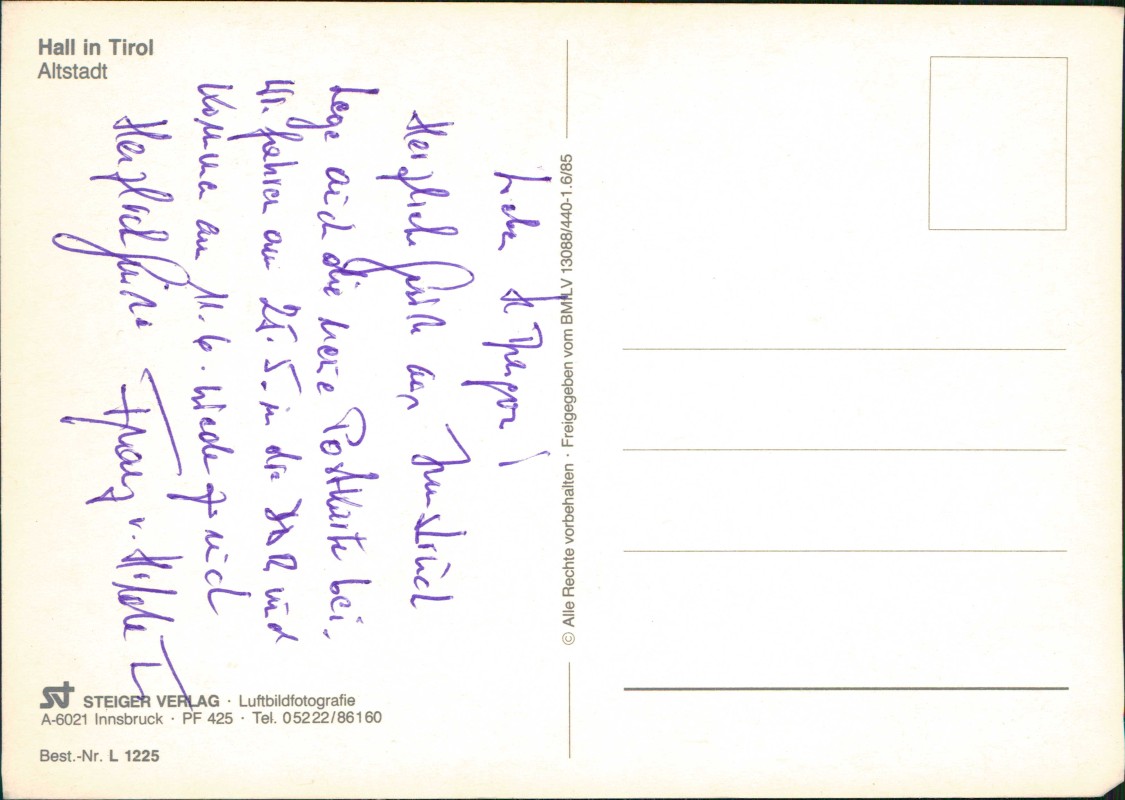 Hall in Tirol
Altstadt
Lieber H.
Herzliche Grüße aus Innsbruck
Lege auch die neue Postkarte bei.
Wir fahren am 25.5. in die DDR und
komma am 11.6. wieder zurück
Herzliche Grüße Franz v.
© Alle Rechte vorbehalten · Freigegeben vom BMfLV 13088/440-1.6/85
STEIGER VERLAG · Luftbildfotografie
A-6021 Innsbruck · PF 425 · Tel. 05222/86160
Best.-Nr. L 1225